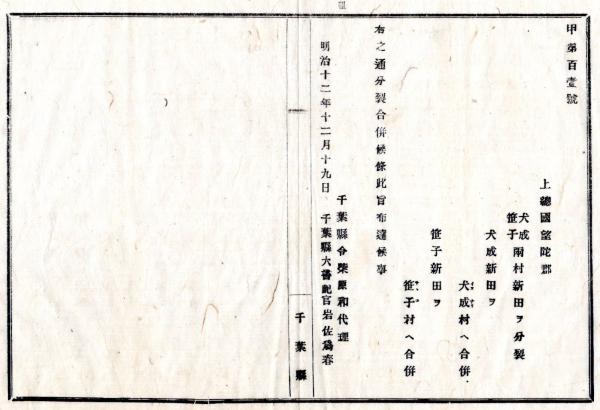 甲第百壹號
上總國望陀郡
犬成
笹子 兩村新田ヲ分裂
犬成新田ヲ
犬成村ヘ合併
笹子新田ヲ
笹子村ヘ合併
右之通分裂合併候條此旨布達候事
千葉縣令柴原和代理
明治十二年十二月十九日 千葉縣大書記官岩佐爲春
千葉縣